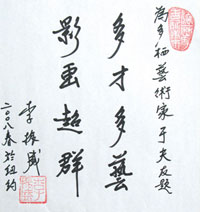 為多栖藝術家于夫友題
多才多藝
影畫超群
李振盛
二〇〇八春於紐約